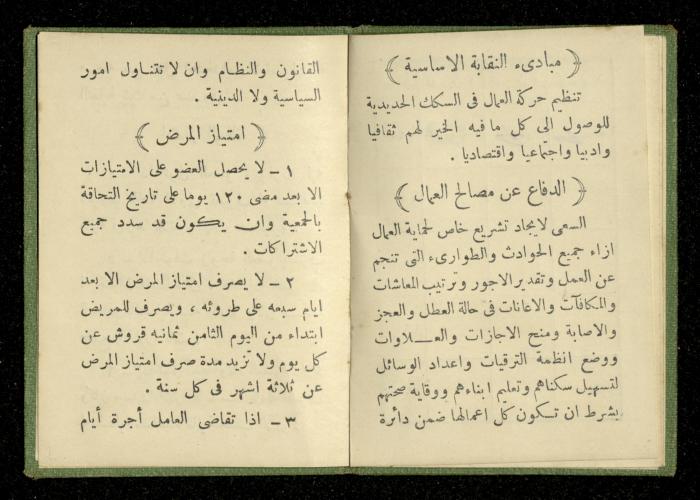 ﴿ مبادىء النقابة الاساسية ﴾
تنظيم حركة العمال فى السكك الحديدية
للوصول الى كل ما فيه الخير لهم ثقافيا
وادبيا واجتماعيا واقتصاديا .
﴿ الدفاع عن مصالح العمال ﴾
السعى لايجاد تشريع خاص لحماية العمال
ازاء جميع الحوادث والطوارىء التى تنجم
عن العمل وتقدير الاجور وترتيب المعاشات
والمكافآت والاعانات فى حالة العطل والعجز
والاصابة ومنح الاجازات والعـــلاوات
ووضع انظمة الترقيات واعداد الوسائل
لتسهيل سكناهم وتعليم ابناءهم ووقاية صحتهم
بشرط ان تـكون كل اعمالها ضمن دائرة
القانون والنظـام وان لا تتنـاول امور
السياسية ولا الدينية .
﴿ امتياز المرض ﴾
١ – لا يحصل العضو على الامتيازات
الا بعد مضى ١٢٠ يوما على تاريخ التحاقة
بالجمعية وان يـكون قد سدد جميع
الاشتراكات .
٢ – لا يصرف امتياز المرض الا بعد
ايام سبعه على طروئه ، ويصرف للمريض
ابتداء من اليوم الثامن ثمانيه قروش عن
كل يوم ولا تزيد مدة صرف امتياز المرض
عن ثلاثة اشهر فى كل سنة .
٣ – اذا تقاضى العامل أجرة أيام